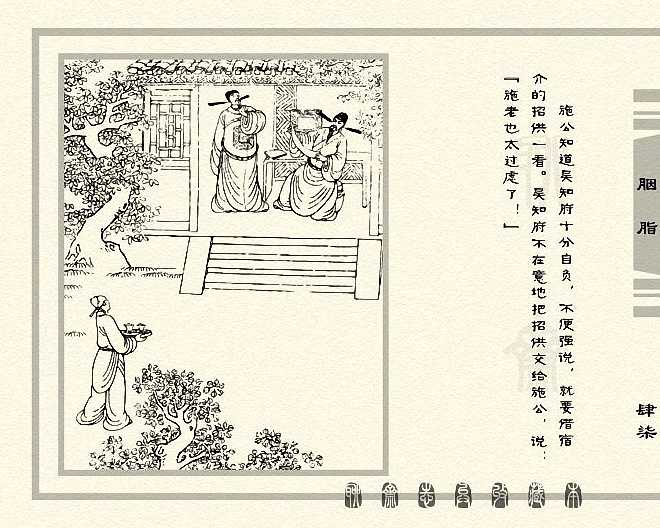 施公知道吴知府十分自负，不便强说，就要借宿
介的招供一看。吴知府不在意地把招供交给施公，说：
「施老也太过虑了！」
胭脂
肆柒
聊斋志异收藏本